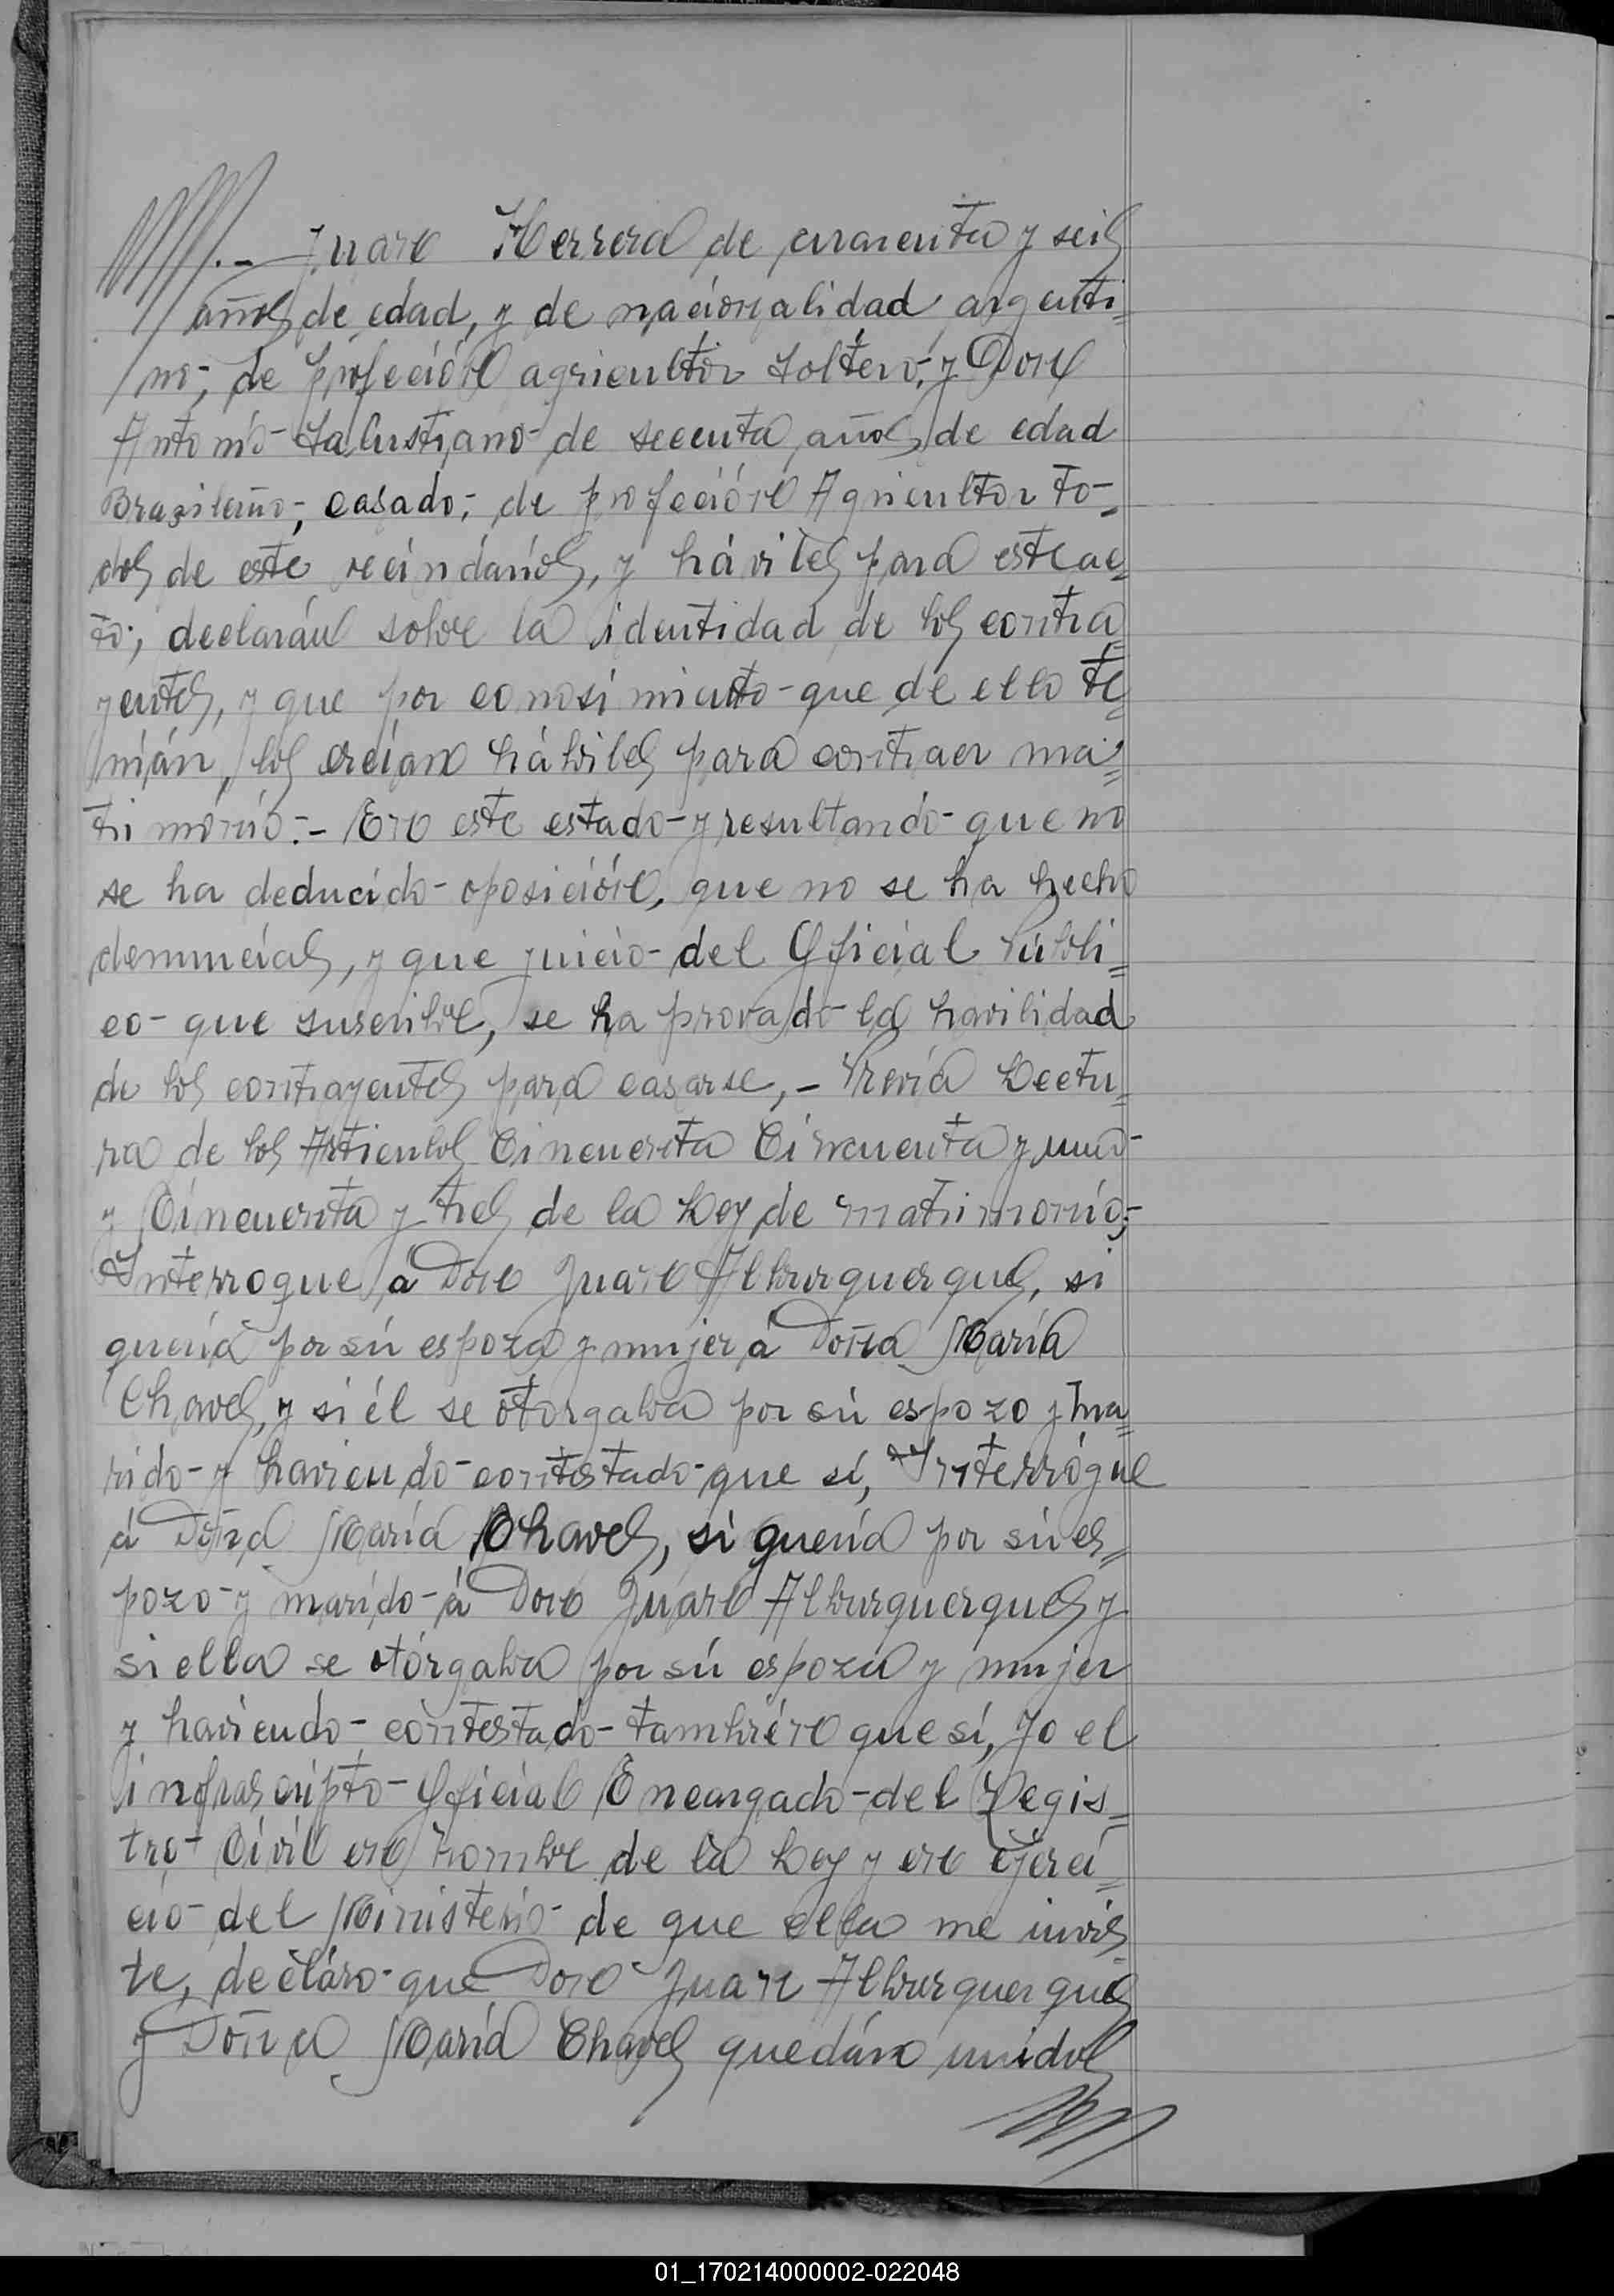 Juan Herrera de cuarenta y seis
años de edad, y de nacionalidad argenti=
no-, de profeción agricultor Soltero-, y Don
Antonio- Salustiano- de secenta años de edad
Brazileño-, casado-, de profeción Agricultor to-
dos de este vecindários, y háviles para este ac=
to-, declarán sobre la identidad de los contra=
yentes, y que por conosimiento- que de ello te=
nián, los creían hábiles para contraer ma=
trimónio.- En este estado- y resultando- que no
se ha deducido- oposición, que no se ha hecho
denuncias, y que juicio- del Oficial Públi=
co- que suscribe, se ha provado- la havilidad
de los contrayentes para casarse,- Previa Lectu=
ra de los Articulos Cincuenta Cincuenta y uno-
y Cincuenta y tres de la Ley de matrimonio-,
Interrogue a Don Juan Alburquerques, si
quería por sú espoza y mujer á Doña María
Chaves, y si él se otorgaba por sú espozo y ma=
rido- y haviendo- contestado- que sí, Interrógue
á Doña María Chaves, si quería por sú es=
pozo- y marido- á Don Juán Alburquerques y
si ella se otórgaba por sú espoza y mujer
y haviendo- contestado- también que sí, Yo el
infrascripto- Oficial Encargado- del Regis=
tro- Civil en nombre de la Ley y en ejerci=
cio- del Ministerio- de que ella me invis=
te, decláro- que Don Juan Alburquerques
y Doña María Chaves quedán unidos
01_170214000002-022048